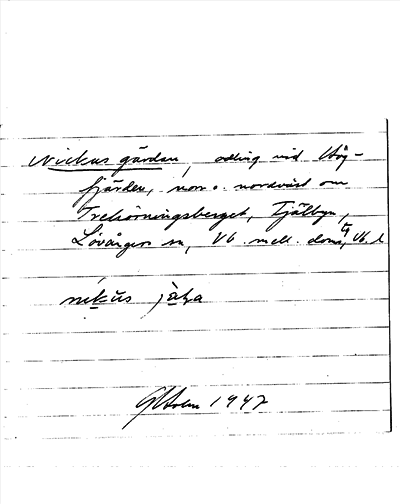 Nickus gärdan, odling vid Hög-
fjärden, norr o. nordväst om
Trehörningsberget, Fjälbyn,
Lövånger sn, Vb. mell. doms, Vb. l
nikus
GHolm 1947